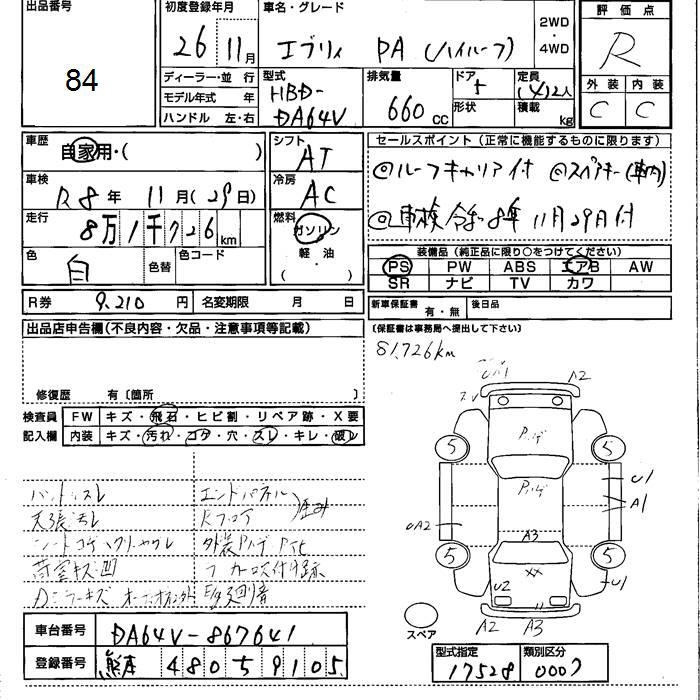 出品番号
84
初度登録年月
26 11月
車名・グレード
エブリィ PA (ハイルーフ)
2WD
・
4WD
評価点
R
外装 内装
C C
ディーラー・並行
モデル年式 年
ハンドル 左・右
型式
HBD-
DA64V
排気量
660 CC
ドア
5
形状
定員
(4)2人
積載
kg
車歴
自家用・( )
シフト
AT
車検
R8年 11月(29日)
冷房
AC
走行
8万1千726km
燃料
ガソリン
軽油
( )
色
白
色替
色コード
R券 9,210円
名変期限 月 日
セールスポイント (正常に機能するものに限ります)
◎ルーフキャリア付 ◎スペアキー(車内)
◎車検令和8年11月29日付
装備品 (純正品に限り○をつけてください)
PS PW ABS エアB AW
SR ナビ TV カワ
新車保証書 有・無
後日品
(保証書は事務局へ提出して下さい)
出品店申告欄(不良内容・欠品・注意事項等記載)
修復歴 有〔箇所 〕
81,726km
検査員
記入欄
FW キズ・飛石・ヒビ割・リペア跡・X要
内装 キズ・汚れ・コゲ・穴・スレ・キレ・破レ
ハンドルスレ
天張汚レ
シートコゲ
荷室キズ凹
エンドパネル
Rフロア
歪み
外装
A2
5
5
5
5
U1
A1
UA2
A3
XX
U2
U1
A2 A3
スペア
車台番号 DA64V-867641
登録番号 熊本 480 5 9105
型式指定
17528
類別区分
0007